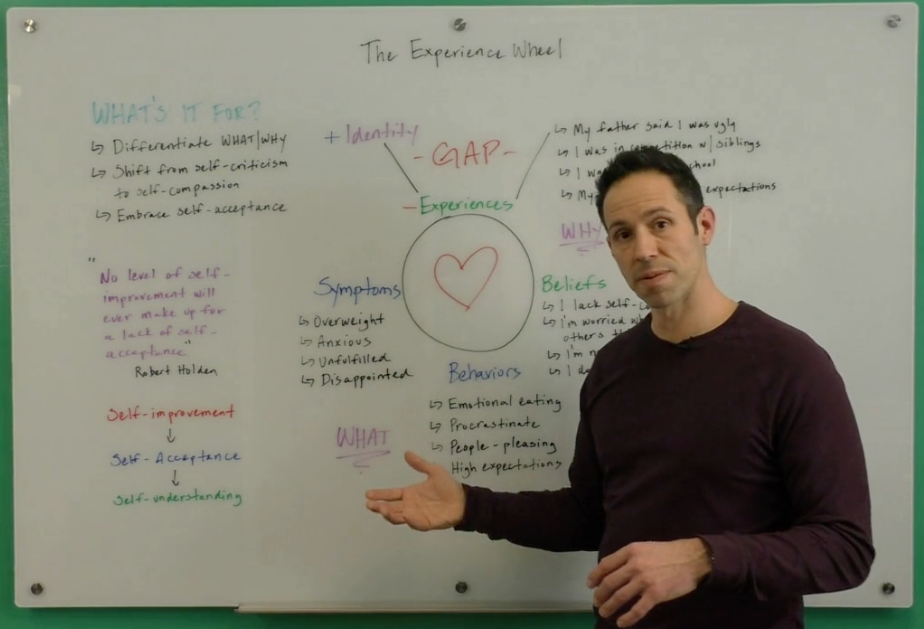 The Experience Wheel
WHAT'S IT FOR?
↳ Differentiate WHAT/WHY
↳ Shift from self-criticism
to self-compassion
↳ Embrace self-acceptance
"No level of self-
improvement will
ever make up for
a lack of self-
acceptance"
Robert Holden
Self-improvement
↓
Self-Acceptance
↓
Self-understanding
+ Identity
- GAP -
- Experiences
↳ My father said I was ugly
↳ I was in competition w/ siblings
↳ I
↳ expectations
WHY
Symptoms
↳ Overweight
↳ Anxious
↳ Unfulfilled
↳ Disappointed
WHAT
Beliefs
↳ I lack self-
↳ I'm worried
others
↳ I'm
↳ I
Behaviors
↳ Emotional eating
↳ Procrastinate
↳ People-pleasing
High expectations